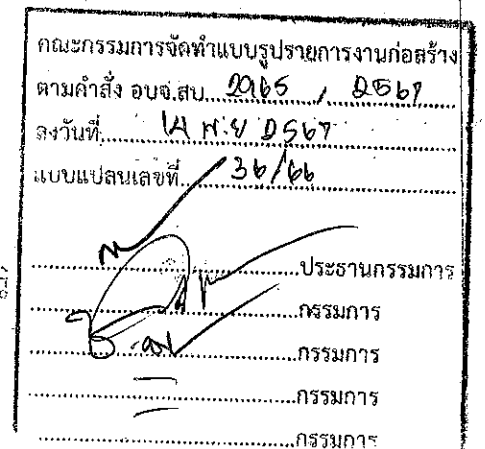 คณะกรรมการจัดทำแบบรูปรายการงานก่อสร้าง
ตามคำสั่ง อบจ.สบ. 2965 / 2567
ลงวันที่ 14 พ.ย 2567
แบบแปลนเลขที่ 36/66
ประธานกรรมการ
กรรมการ
กรรมการ
กรรมการ
กรรมการ